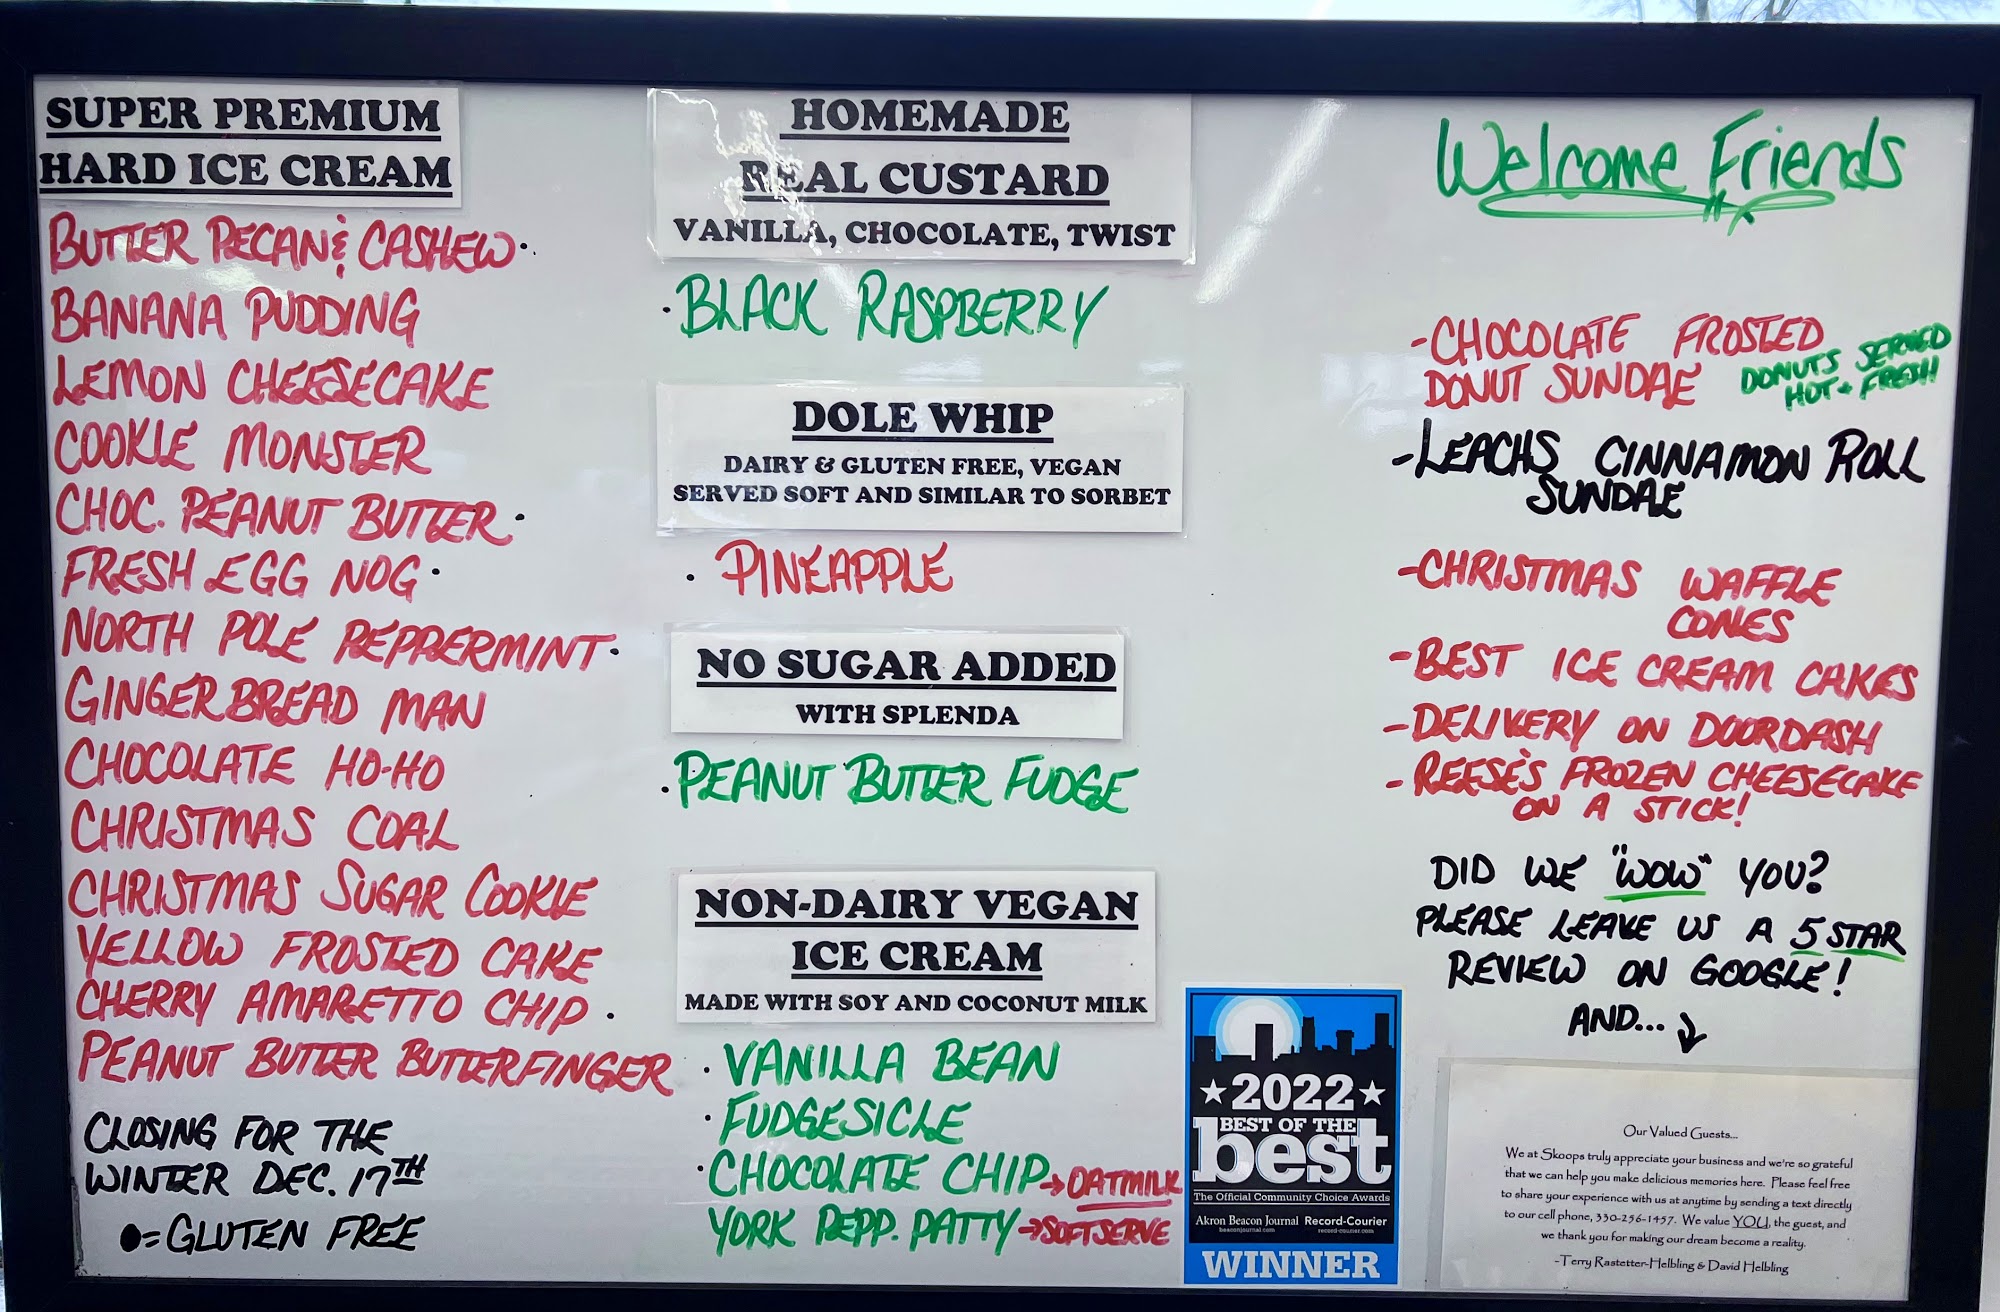 SUPER PREMIUM
HARD ICE CREAM
BUTTER PECAN & CASHEW •
BANANA PUDDING
LEMON CHEESECAKE
COOKIE MONSTER
CHOC. PEANUT BUTTER •
FRESH EGG NOG •
NORTH POLE PEPPERMINT •
GINGERBREAD MAN
CHOCOLATE HO-HO
CHRISTMAS COAL
CHRISTMAS SUGAR COOKIE
YELLOW FROSTED CAKE
CHERRY AMARETTO CHIP •
PEANUT BUTTER BUTTERFINGER
CLOSING FOR THE
WINTER DEC. 17TH
●= GLUTEN FREE
HOMEMADE
REAL CUSTARD
VANILLA, CHOCOLATE, TWIST
• BLACK RASPBERRY
DOLE WHIP
DAIRY & GLUTEN FREE, VEGAN
SERVED SOFT AND SIMILAR TO SORBET
• PINEAPPLE
NO SUGAR ADDED
WITH SPLENDA
• PEANUT BUTTER FUDGE
NON-DAIRY VEGAN
ICE CREAM
MADE WITH SOY AND COCONUT MILK
• VANILLA BEAN
• FUDGESICLE
• CHOCOLATE CHIP → OATMILK
YORK PEPP. PATTY → SOFTSERVE
Welcome Friends
- CHOCOLATE FROSTED
DONUT SUNDAE
DONUTS SERVED
HOT + FRESH
- LEACHS CINNAMON ROLL
SUNDAE
- CHRISTMAS WAFFLE
CONES
- BEST ICE CREAM CAKES
- DELIVERY ON DOORDASH
- REESE'S FROZEN CHEESECAKE
ON A STICK!
DID WE "WOW" YOU?
PLEASE LEAVE US A 5 STAR
REVIEW ON GOOGLE!
AND... ↓
2022
BEST OF THE
best
The Official Community Choice Awards
Akron Beacon Journal Record-Courier
beaconjournal.com record-courier.com
WINNER
Our Valued Guests...
We at Skoops truly appreciate your business and we're so grateful
that we can help you make delicious memories here. Please feel free
to share your experience with us at anytime by sending a text directly
to our cell phone, 330-256-1457. We value YOU, the guest, and
we thank you for making our dream become a reality.
-Terry Rastetter-Helbling & David Helbling